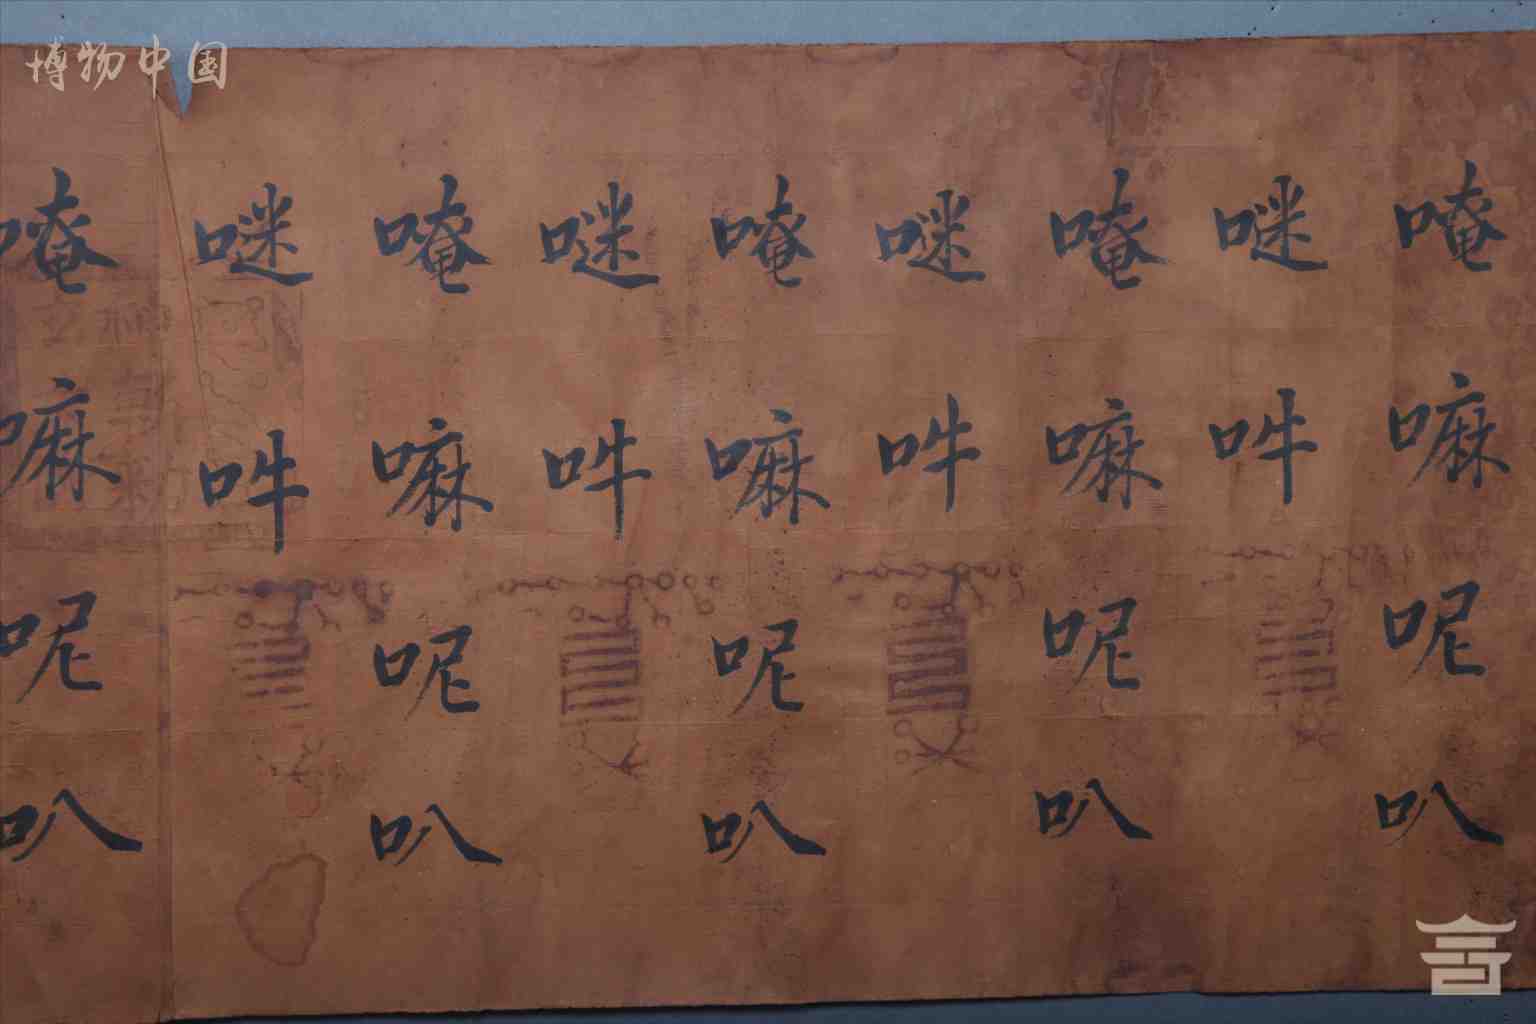 博物中国
唵嘛呢叭
咪吽
唵嘛呢叭
咪吽
唵嘛呢叭
咪吽
唵嘛呢叭
咪吽
唵嘛呢叭